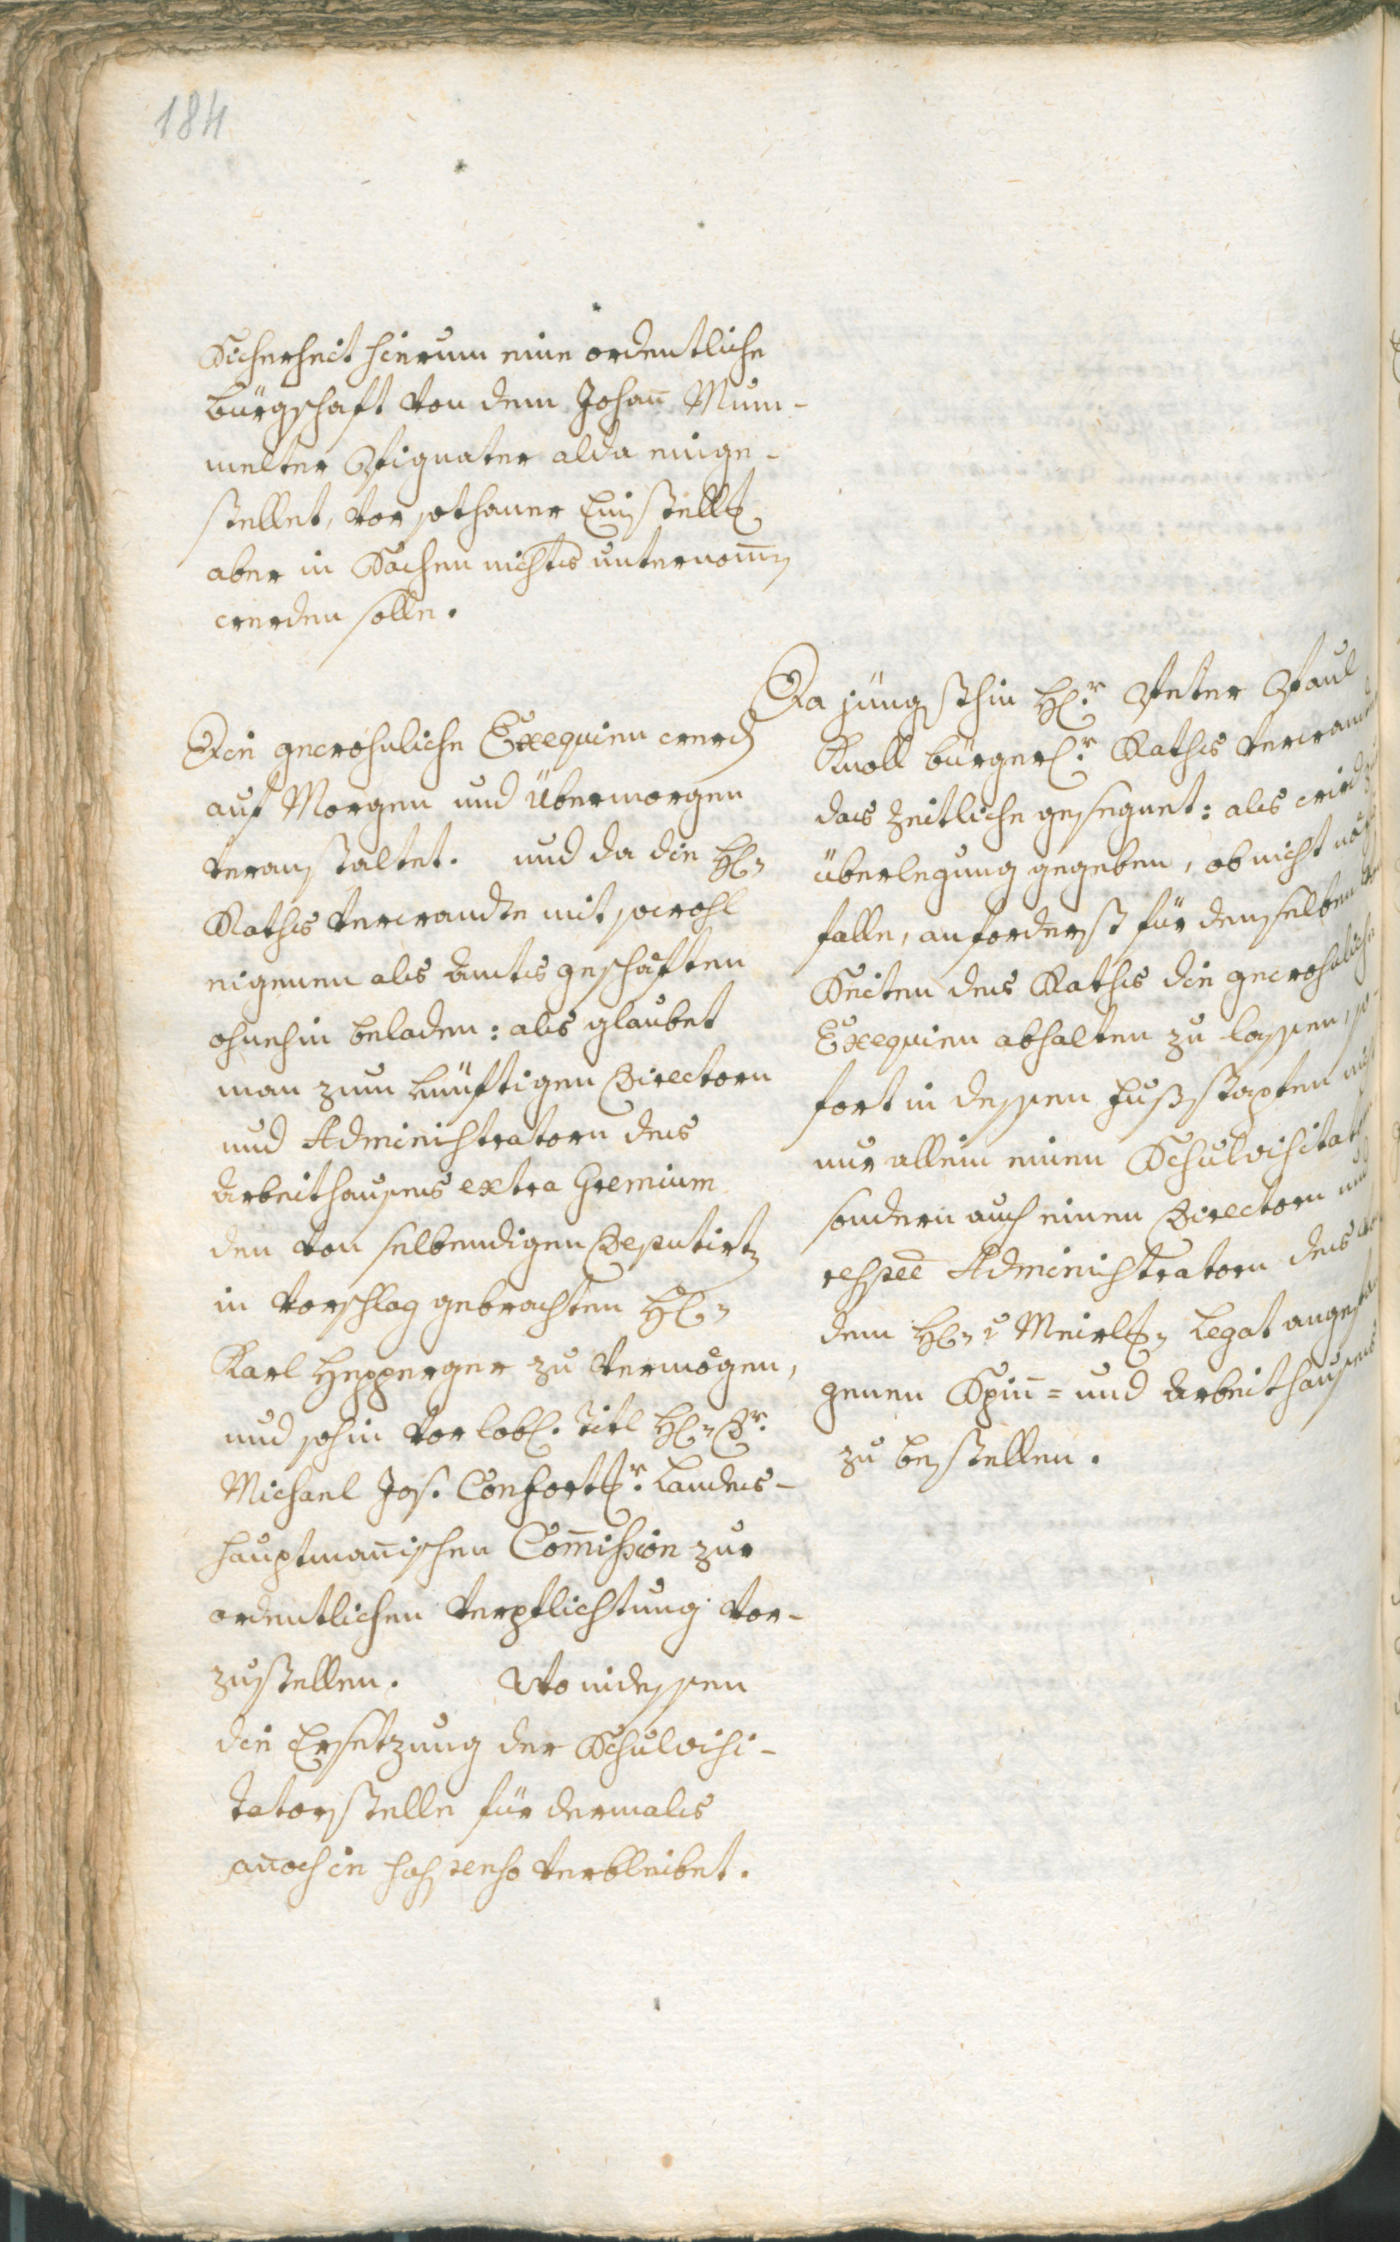 184
Sicherheit hierum eine ordentliche
bürgschaft von dem Johan̄ Mum-
melter Pignater alda einge-
stellet, vor sothaner Einstellg
aber in Sachen nichts unternom̄en
werden solle.
Die gewöhnliche Exequien werdn
auf Morgen und Übermorgen
veranstaltet. und da die H:
Raths verwandte mit sowohl
eigenen als Amtsgeschäften
ohnehin beladen: als glaubet
man zum künftigen Directorn
und Administratorn des
Arbeithauses extra Gremium
den von selbendigen Deputirtn
in Vorschlag gebrachten H:
Karl Hepperger zu vermögen,
und sohin vor lobl. Titl H: Dr.
Michael Jos. Confortischer. Landes-
hauptman̄ischen Com̄ission zur
ordentlichen Verpflichtung vor-
zustellen. Wo indessen
die Ersetzung der Schulvisi-
tatorstelle für dermals
an̄och in suspenso verbleibet.
Da jüngsthin H:r Peter Paul
Knoll bürgerl:r Raths verwandt
das Zeitliche gesegnet: als wird zu
überlegung gegeben, ob nicht
falle, anforderst für denselben
Seiten des Raths die gewöhnliche
Exequien abhalten zu lassen, so-
fort in dessen Fußstapfen nicht
nur allein einen Schulvisitator
sondern auch einen Directorn und
respec̄ Administratorn des
dem H: v Meirl Legat
genen Spin̄= und Arbeithauses
zu bestellen.